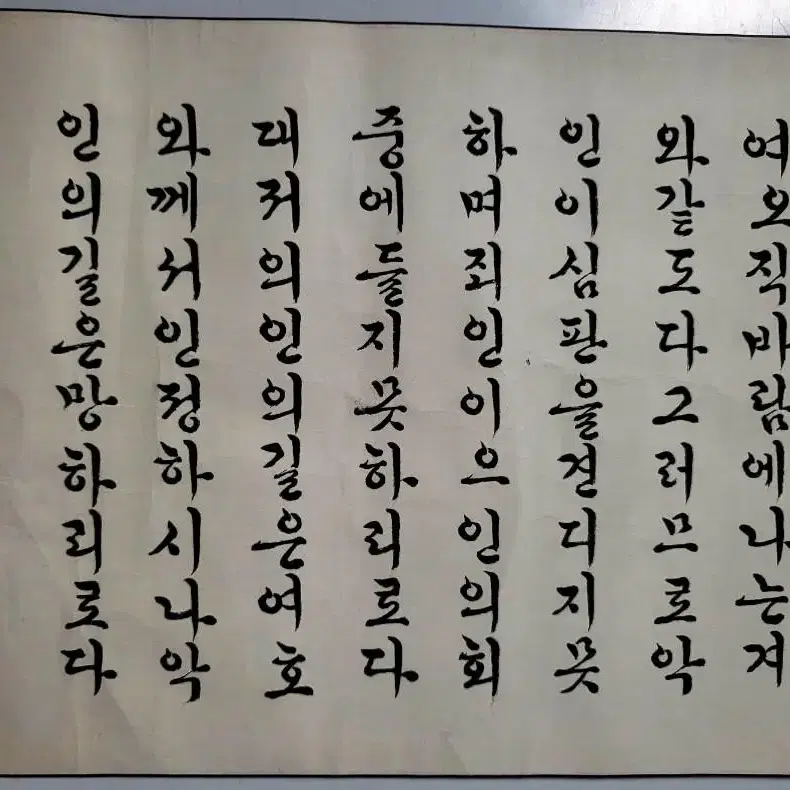 여오직바람에나는겨
와같도다그러므로악
인이심판을견디지못
하며죄인이으인의회
중에들지못하리로다
대저의인의길은여호
와께서인정하시나악
인의길은망하리로다